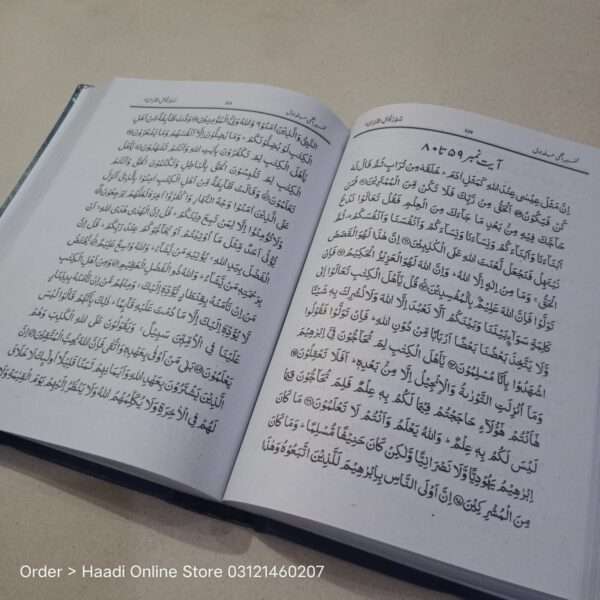 آیت نمبر ۵۹ تا ۸۰
اِنَّ مَثَلَ عِیْسٰی عِنْدَ اللّٰهِ كَمَثَلِ اٰدَمَ ؕ خَلَقَهٗ مِنْ تُرَابٍ ثُمَّ قَالَ لَهٗ
كُنْ فَیَكُوْنُ۝ اَلْحَقُّ مِنْ رَّبِّكَ فَلَا تَكُنْ مِّنَ الْمُمْتَرِیْنَ۝ فَمَنْ
حَآجَّكَ فِیْهِ مِنْۢ بَعْدِ مَا جَآءَكَ مِنَ الْعِلْمِ فَقُلْ تَعَالَوْا نَدْعُ
اَبْنَآءَنَا وَاَبْنَآءَكُمْ وَنِسَآءَنَا وَنِسَآءَكُمْ وَاَنْفُسَنَا وَاَنْفُسَكُمْ ۫ ثُمَّ
نَبْتَهِلْ فَنَجْعَلْ لَّعْنَتَ اللّٰهِ عَلَی الْكٰذِبِیْنَ۝ اِنَّ هٰذَا لَهُوَ الْقَصَصُ
الْحَقُّ ۚ وَمَا مِنْ اِلٰهٍ اِلَّا اللّٰهُ ؕ وَاِنَّ اللّٰهَ لَهُوَ الْعَزِیْزُ الْحَكِیْمُ۝ فَاِنْ
تَوَلَّوْا فَاِنَّ اللّٰهَ عَلِیْمٌۢ بِالْمُفْسِدِیْنَ۝ قُلْ یٰۤاَهْلَ الْكِتٰبِ تَعَالَوْا اِلٰی
كَلِمَةٍ سَوَآءٍۭ بَیْنَنَا وَبَیْنَكُمْ اَلَّا نَعْبُدَ اِلَّا اللّٰهَ وَلَا نُشْرِكَ بِهٖ شَیْـًٔا
وَّلَا یَتَّخِذَ بَعْضُنَا بَعْضًا اَرْبَابًا مِّنْ دُوْنِ اللّٰهِ ؕ فَاِنْ تَوَلَّوْا فَقُوْلُوا
اشْهَدُوْا بِاَنَّا مُسْلِمُوْنَ۝ یٰۤاَهْلَ الْكِتٰبِ لِمَ تُحَآجُّوْنَ فِیْۤ اِبْرٰهِیْمَ
وَمَاۤ اُنْزِلَتِ التَّوْرٰىةُ وَالْاِنْجِیْلُ اِلَّا مِنْۢ بَعْدِهٖ ؕ اَفَلَا تَعْقِلُوْنَ۝
هٰۤاَنْتُمْ هٰۤؤُلَآءِ حَاجَجْتُمْ فِیْمَا لَكُمْ بِهٖ عِلْمٌ فَلِمَ تُحَآجُّوْنَ فِیْمَا
لَیْسَ لَكُمْ بِهٖ عِلْمٌ ؕ وَاللّٰهُ یَعْلَمُ وَاَنْتُمْ لَا تَعْلَمُوْنَ۝ مَا كَانَ
اِبْرٰهِیْمُ یَهُوْدِیًّا وَّلَا نَصْرَانِیًّا وَّلٰكِنْ كَانَ حَنِیْفًا مُّسْلِمًا ؕ وَمَا كَانَ
مِنَ الْمُشْرِكِیْنَ۝ اِنَّ اَوْلَی النَّاسِ بِاِبْرٰهِیْمَ لَلَّذِیْنَ اتَّبَعُوْهُ وَهٰذَا
النَّبِیُّ وَالَّذِیْنَ اٰمَنُوْا ؕ وَاللّٰهُ وَلِیُّ الْمُؤْمِنِیْنَ۝ وَدَّتْ طَّآئِفَةٌ مِّنْ اَهْلِ
الْكِتٰبِ لَوْ یُضِلُّوْنَكُمْ ؕ وَمَا یُضِلُّوْنَ اِلَّاۤ اَنْفُسَهُمْ وَمَا یَشْعُرُوْنَ۝
یٰۤاَهْلَ الْكِتٰبِ لِمَ تَكْفُرُوْنَ بِاٰیٰتِ اللّٰهِ وَاَنْتُمْ تَشْهَدُوْنَ۝
یٰۤاَهْلَ الْكِتٰبِ لِمَ تَلْبِسُوْنَ الْحَقَّ بِالْبَاطِلِ وَتَكْتُمُوْنَ الْحَقَّ وَاَنْتُمْ
تَعْلَمُوْنَ۝ وَقَالَتْ طَّآئِفَةٌ مِّنْ اَهْلِ الْكِتٰبِ اٰمِنُوْا بِالَّذِیْۤ اُنْزِلَ
عَلَی الَّذِیْنَ اٰمَنُوْا وَجْهَ النَّهَارِ وَاكْفُرُوْۤا اٰخِرَهٗ لَعَلَّهُمْ یَرْجِعُوْنَ۝
وَلَا تُؤْمِنُوْۤا اِلَّا لِمَنْ تَبِعَ دِیْنَكُمْ ؕ قُلْ اِنَّ الْهُدٰی هُدَی اللّٰهِ ۙ اَنْ
یُّؤْتٰۤی اَحَدٌ مِّثْلَ مَاۤ اُوْتِیْتُمْ اَوْ یُحَآجُّوْكُمْ عِنْدَ رَبِّكُمْ ؕ قُلْ اِنَّ
الْفَضْلَ بِیَدِ اللّٰهِ ۚ یُؤْتِیْهِ مَنْ یَّشَآءُ ؕ وَاللّٰهُ وَاسِعٌ عَلِیْمٌ۝ یَّخْتَصُّ
بِرَحْمَتِهٖ مَنْ یَّشَآءُ ؕ وَاللّٰهُ ذُو الْفَضْلِ الْعَظِیْمِ۝ وَمِنْ اَهْلِ الْكِتٰبِ
مَنْ اِنْ تَاْمَنْهُ بِقِنْطَارٍ یُّؤَدِّهٖۤ اِلَیْكَ ۚ وَمِنْهُمْ مَّنْ اِنْ تَاْمَنْهُ بِدِیْنَارٍ
لَّا یُؤَدِّهٖۤ اِلَیْكَ اِلَّا مَا دُمْتَ عَلَیْهِ قَآئِمًا ؕ ذٰلِكَ بِاَنَّهُمْ قَالُوْا لَیْسَ
عَلَیْنَا فِی الْاُمِّیّٖنَ سَبِیْلٌ ۚ وَیَقُوْلُوْنَ عَلَی اللّٰهِ الْكَذِبَ وَهُمْ
یَعْلَمُوْنَ۝ بَلٰی مَنْ اَوْفٰی بِعَهْدِهٖ وَاتَّقٰی فَاِنَّ اللّٰهَ یُحِبُّ الْمُتَّقِیْنَ۝ اِنَّ
الَّذِیْنَ یَشْتَرُوْنَ بِعَهْدِ اللّٰهِ وَاَیْمَانِهِمْ ثَمَنًا قَلِیْلًا اُولٰٓئِكَ لَا خَلَاقَ
لَهُمْ فِی الْاٰخِرَةِ وَلَا یُكَلِّمُهُمُ اللّٰهُ وَلَا یَنْظُرُ اِلَیْهِمْ یَوْمَ الْقِیٰمَةِ وَلَا
Order > Haadi Online Store 03121460207